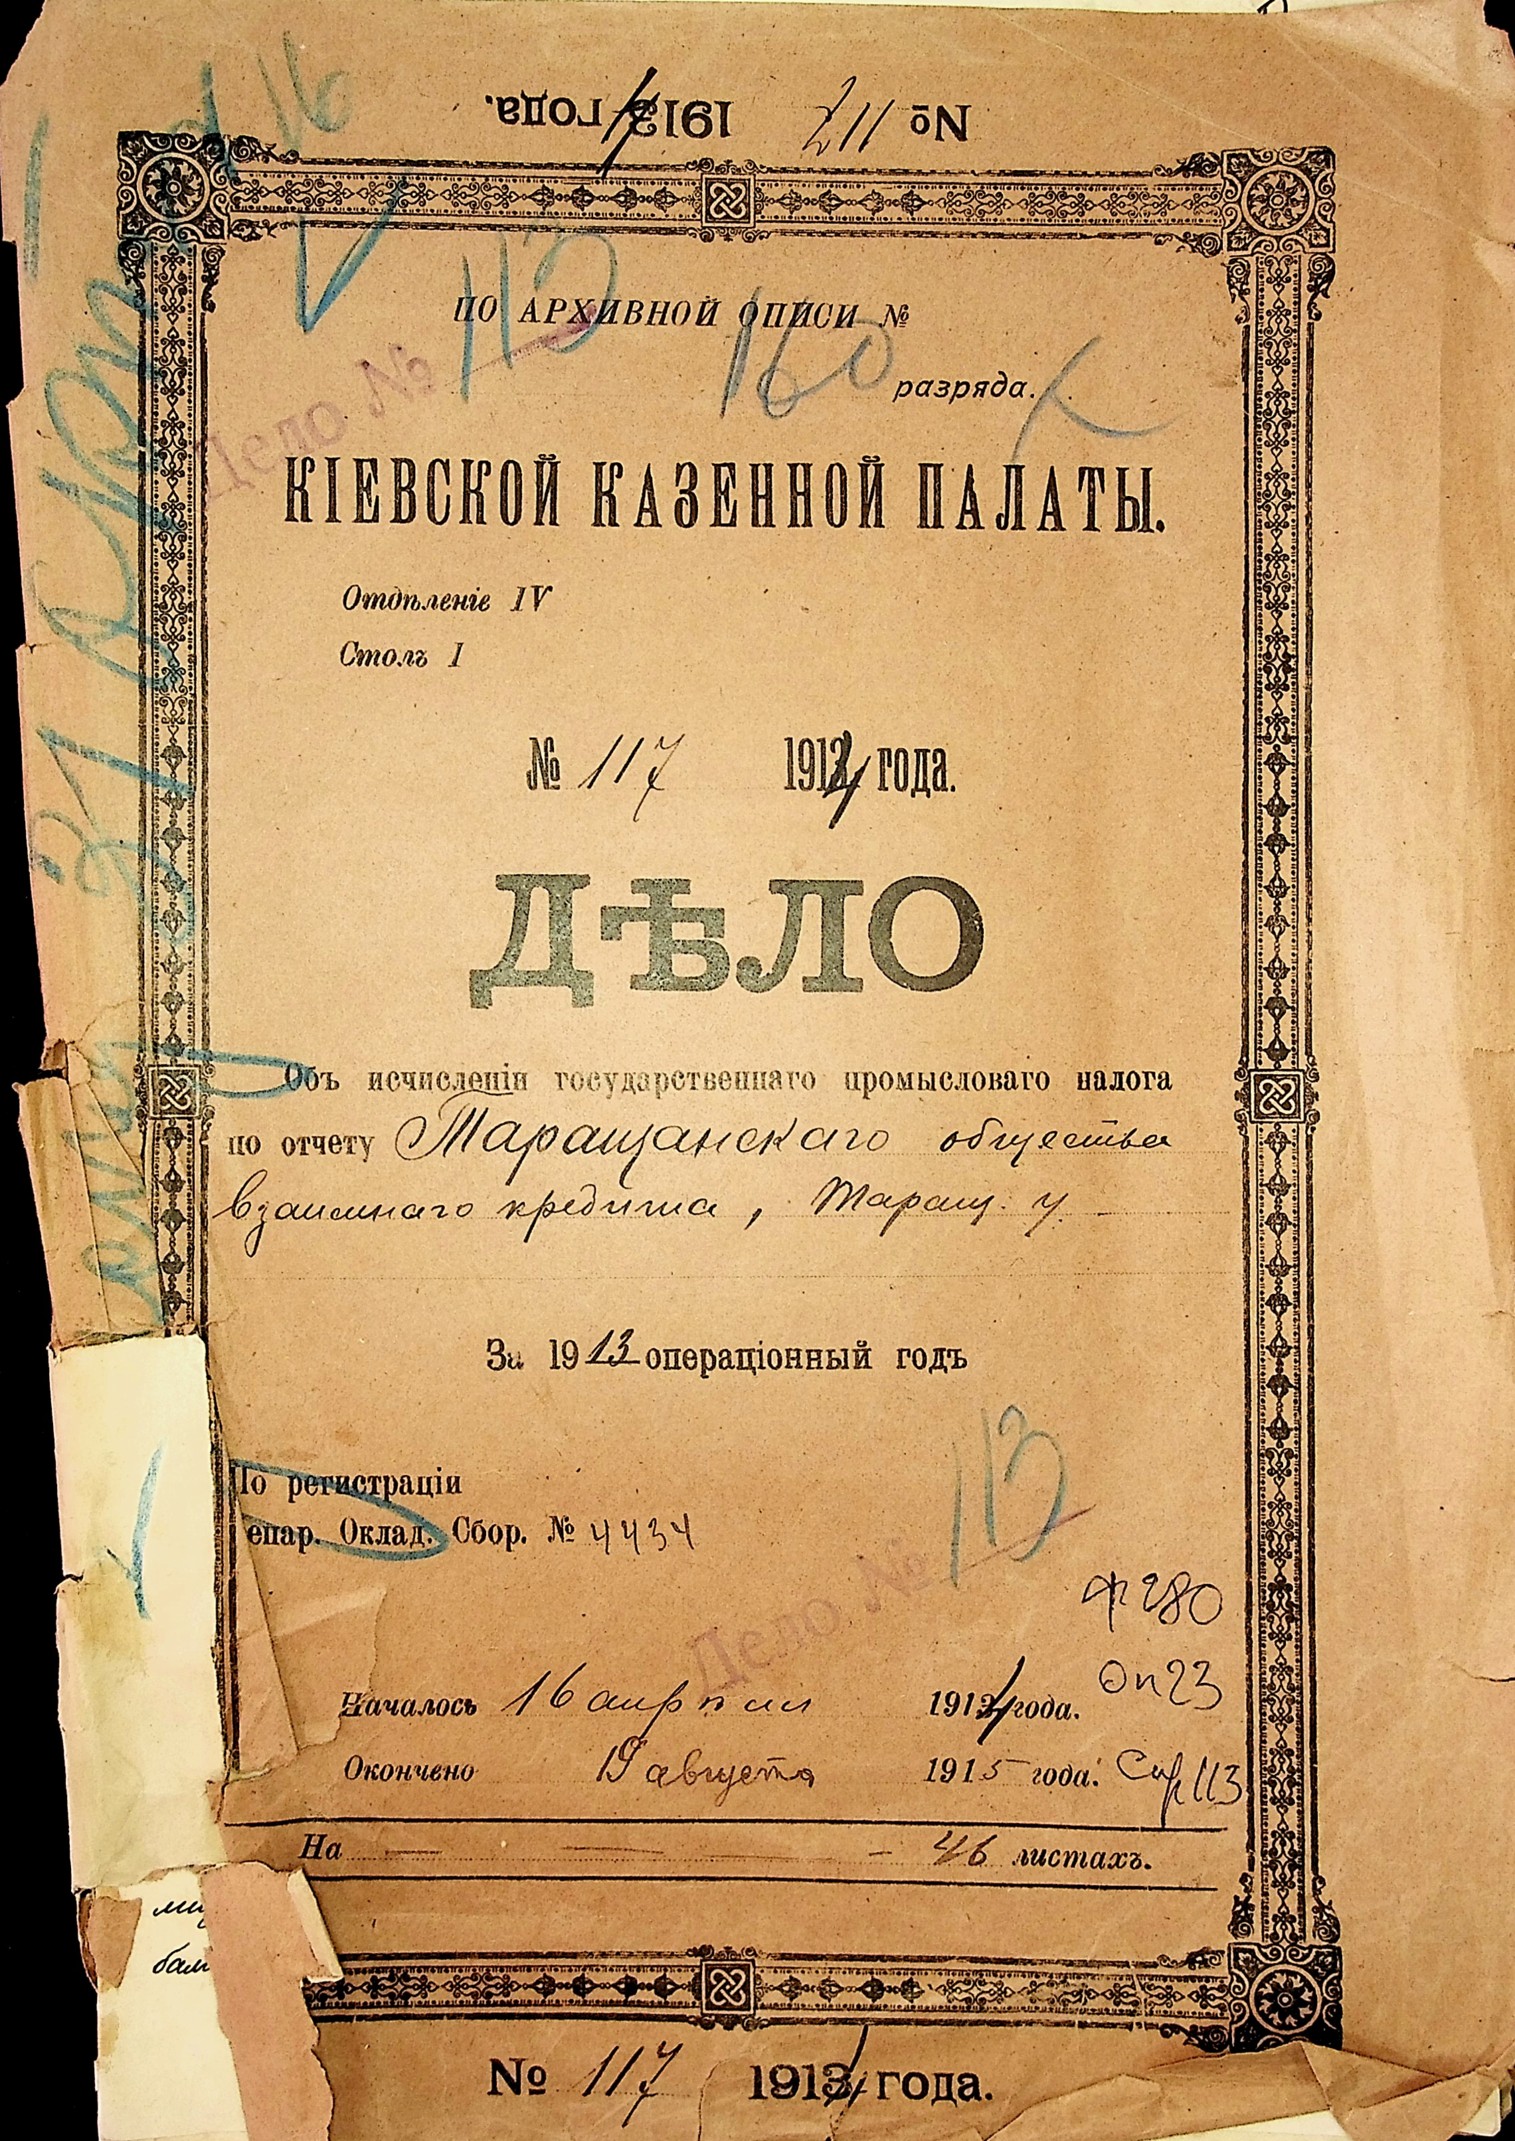 № 117 1914 года.
16
ПО АРХИВНОЙ ОПИСИ №
Дело № 113
160 разряда.
КІЕВСКОЙ КАЗЕННОЙ ПАЛАТЫ.
Отдѣленіе IV
Столъ I
№ 117 1914 года.
ДѢЛО
Объ исчисленіи государственнаго промысловаго налога
по отчету Таращанскаго общества
взаимнаго кредита, Таращ. у.
За 1913 операціонный годъ
По регистраціи
епар. Оклад. Сбор. № 4434
Дело № 113
Ф 280
Началось 16 апрѣля 1914 года. Оп 23
Окончено 19 августа 1915 года. Спр 113
На 46 листахъ.
№ 117 1914 года.